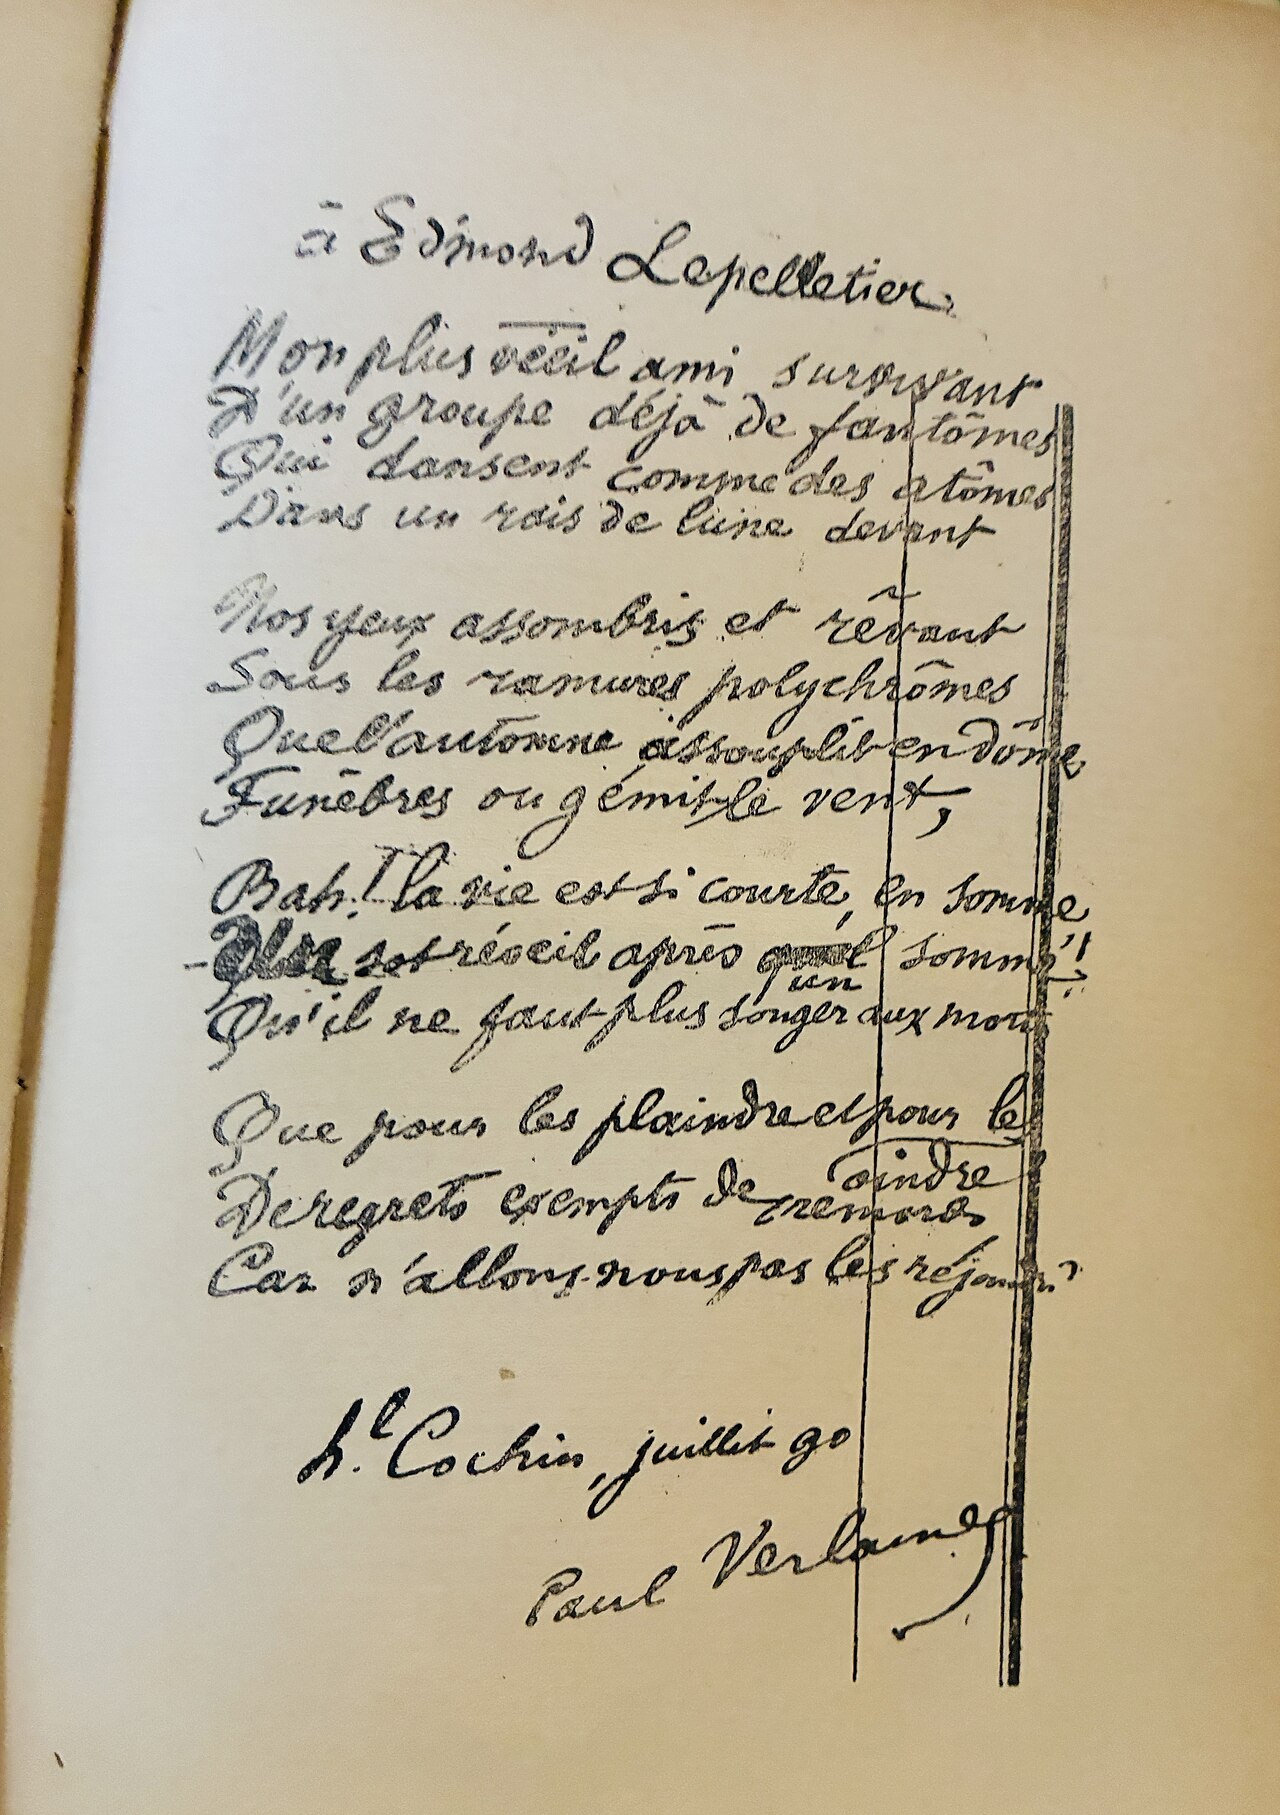 à Edmond Lepelletier.
Mon plus vieil ami survivant
D'un groupe déjà de fantômes
Qui dansent comme des atômes
Dans un rais de lune devant
Nos yeux assombris et rêvant
Sous les ramures polychrômes
Que l'automne assouplit en dômes
Funèbres où gémit le vent,
Bah! la vie est si courte, en somme
- sot réveil après un somme!!
Qu'il ne faut plus songer aux morts
Que pour les plaindre et pour les
oindre
De regrets exempts de remords
Car n'allons-nous pas les rejoindre?
hl. Cochin, juillet 90
Paul Verlaine